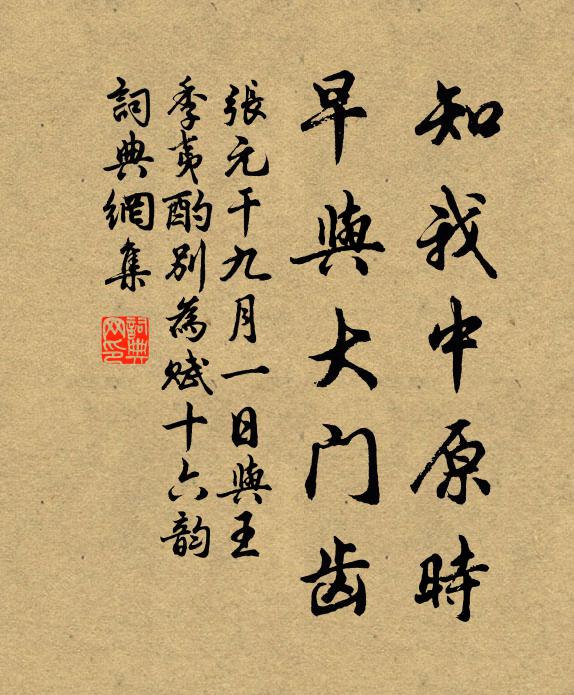 知我中原時
早與大门齿
張元干九月一日與王
季夷酌别為賦十六韵
詞典網集
詞典
网印